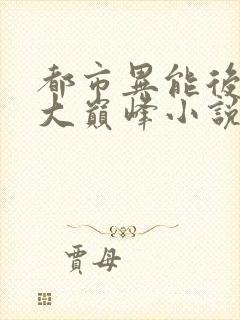 都市異能後
大巔峰小說
賈母